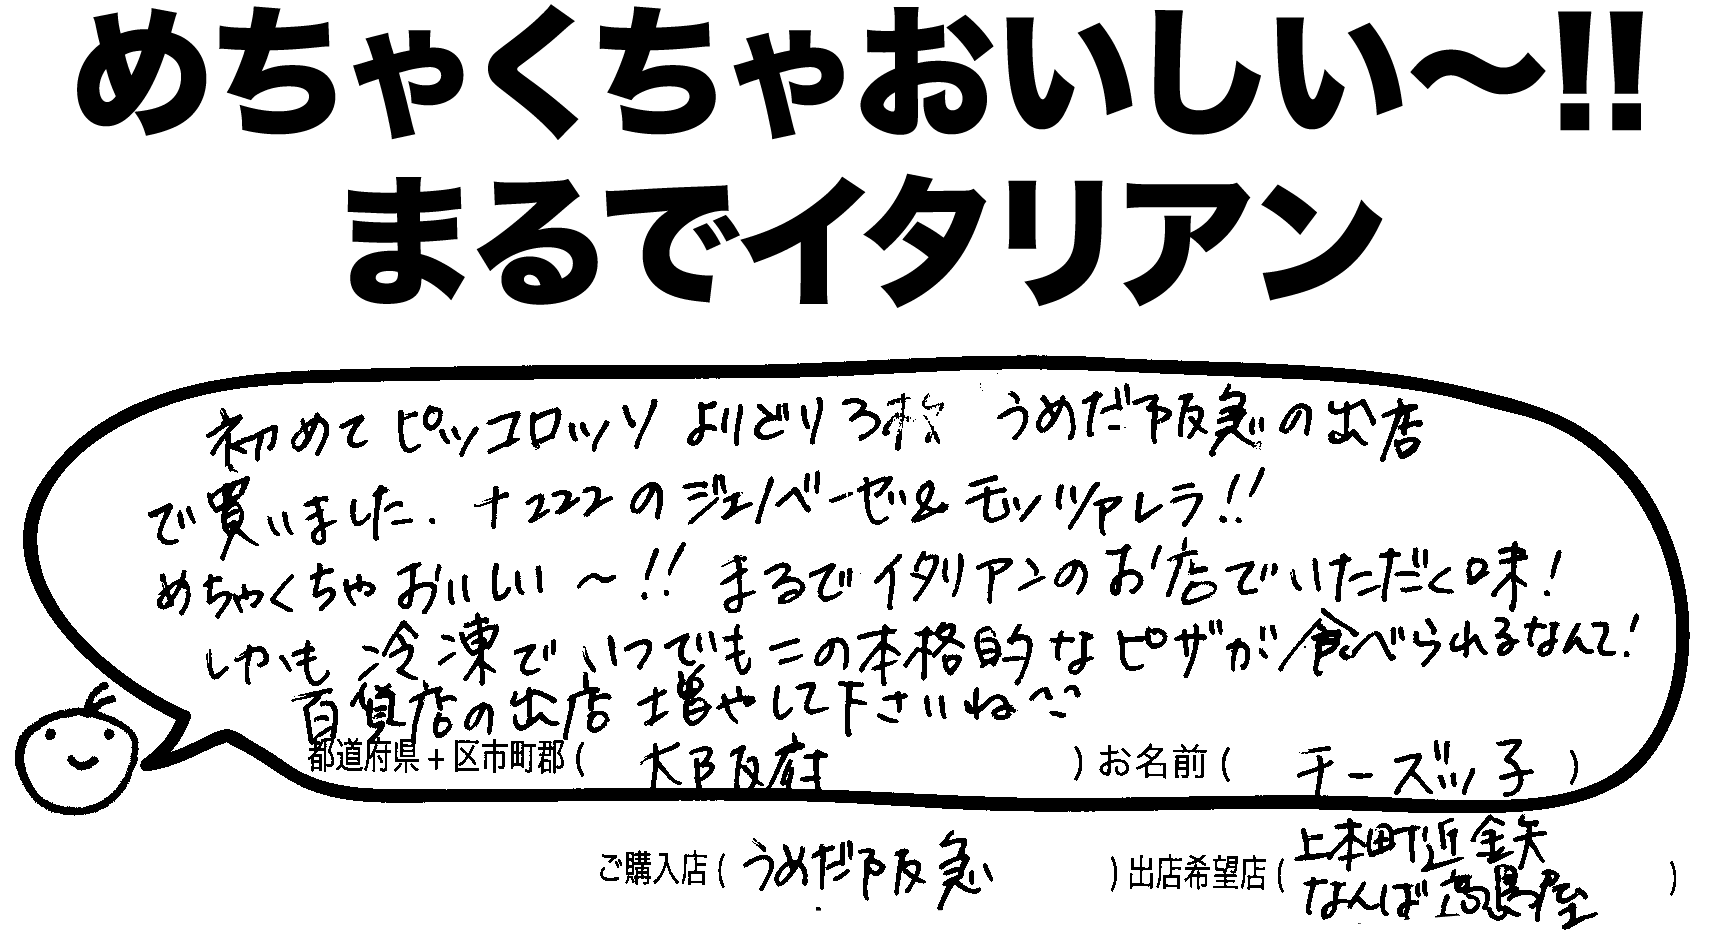 めちゃくちゃおいしい～!!
まるでイタリアン
初めて ピッコロッソ よりどり3枚 うめだ阪急の出店
で買いました. +222の ジェノベーゼ& モッツァレラ!!
めちゃくちゃ おいしい ～!! まるでイタリアンのお店でいただく味!
しかも 冷凍で いつでも この本格的な ピザが 食べられるなんて!
百貨店の出店 増やして下さいね^^
都道府県+区市町郡( 大阪府 ) お名前( チーズッ子 )
ご購入店( うめだ阪急 ) 出店希望店( 上本町近鉄
なんば高島屋 )